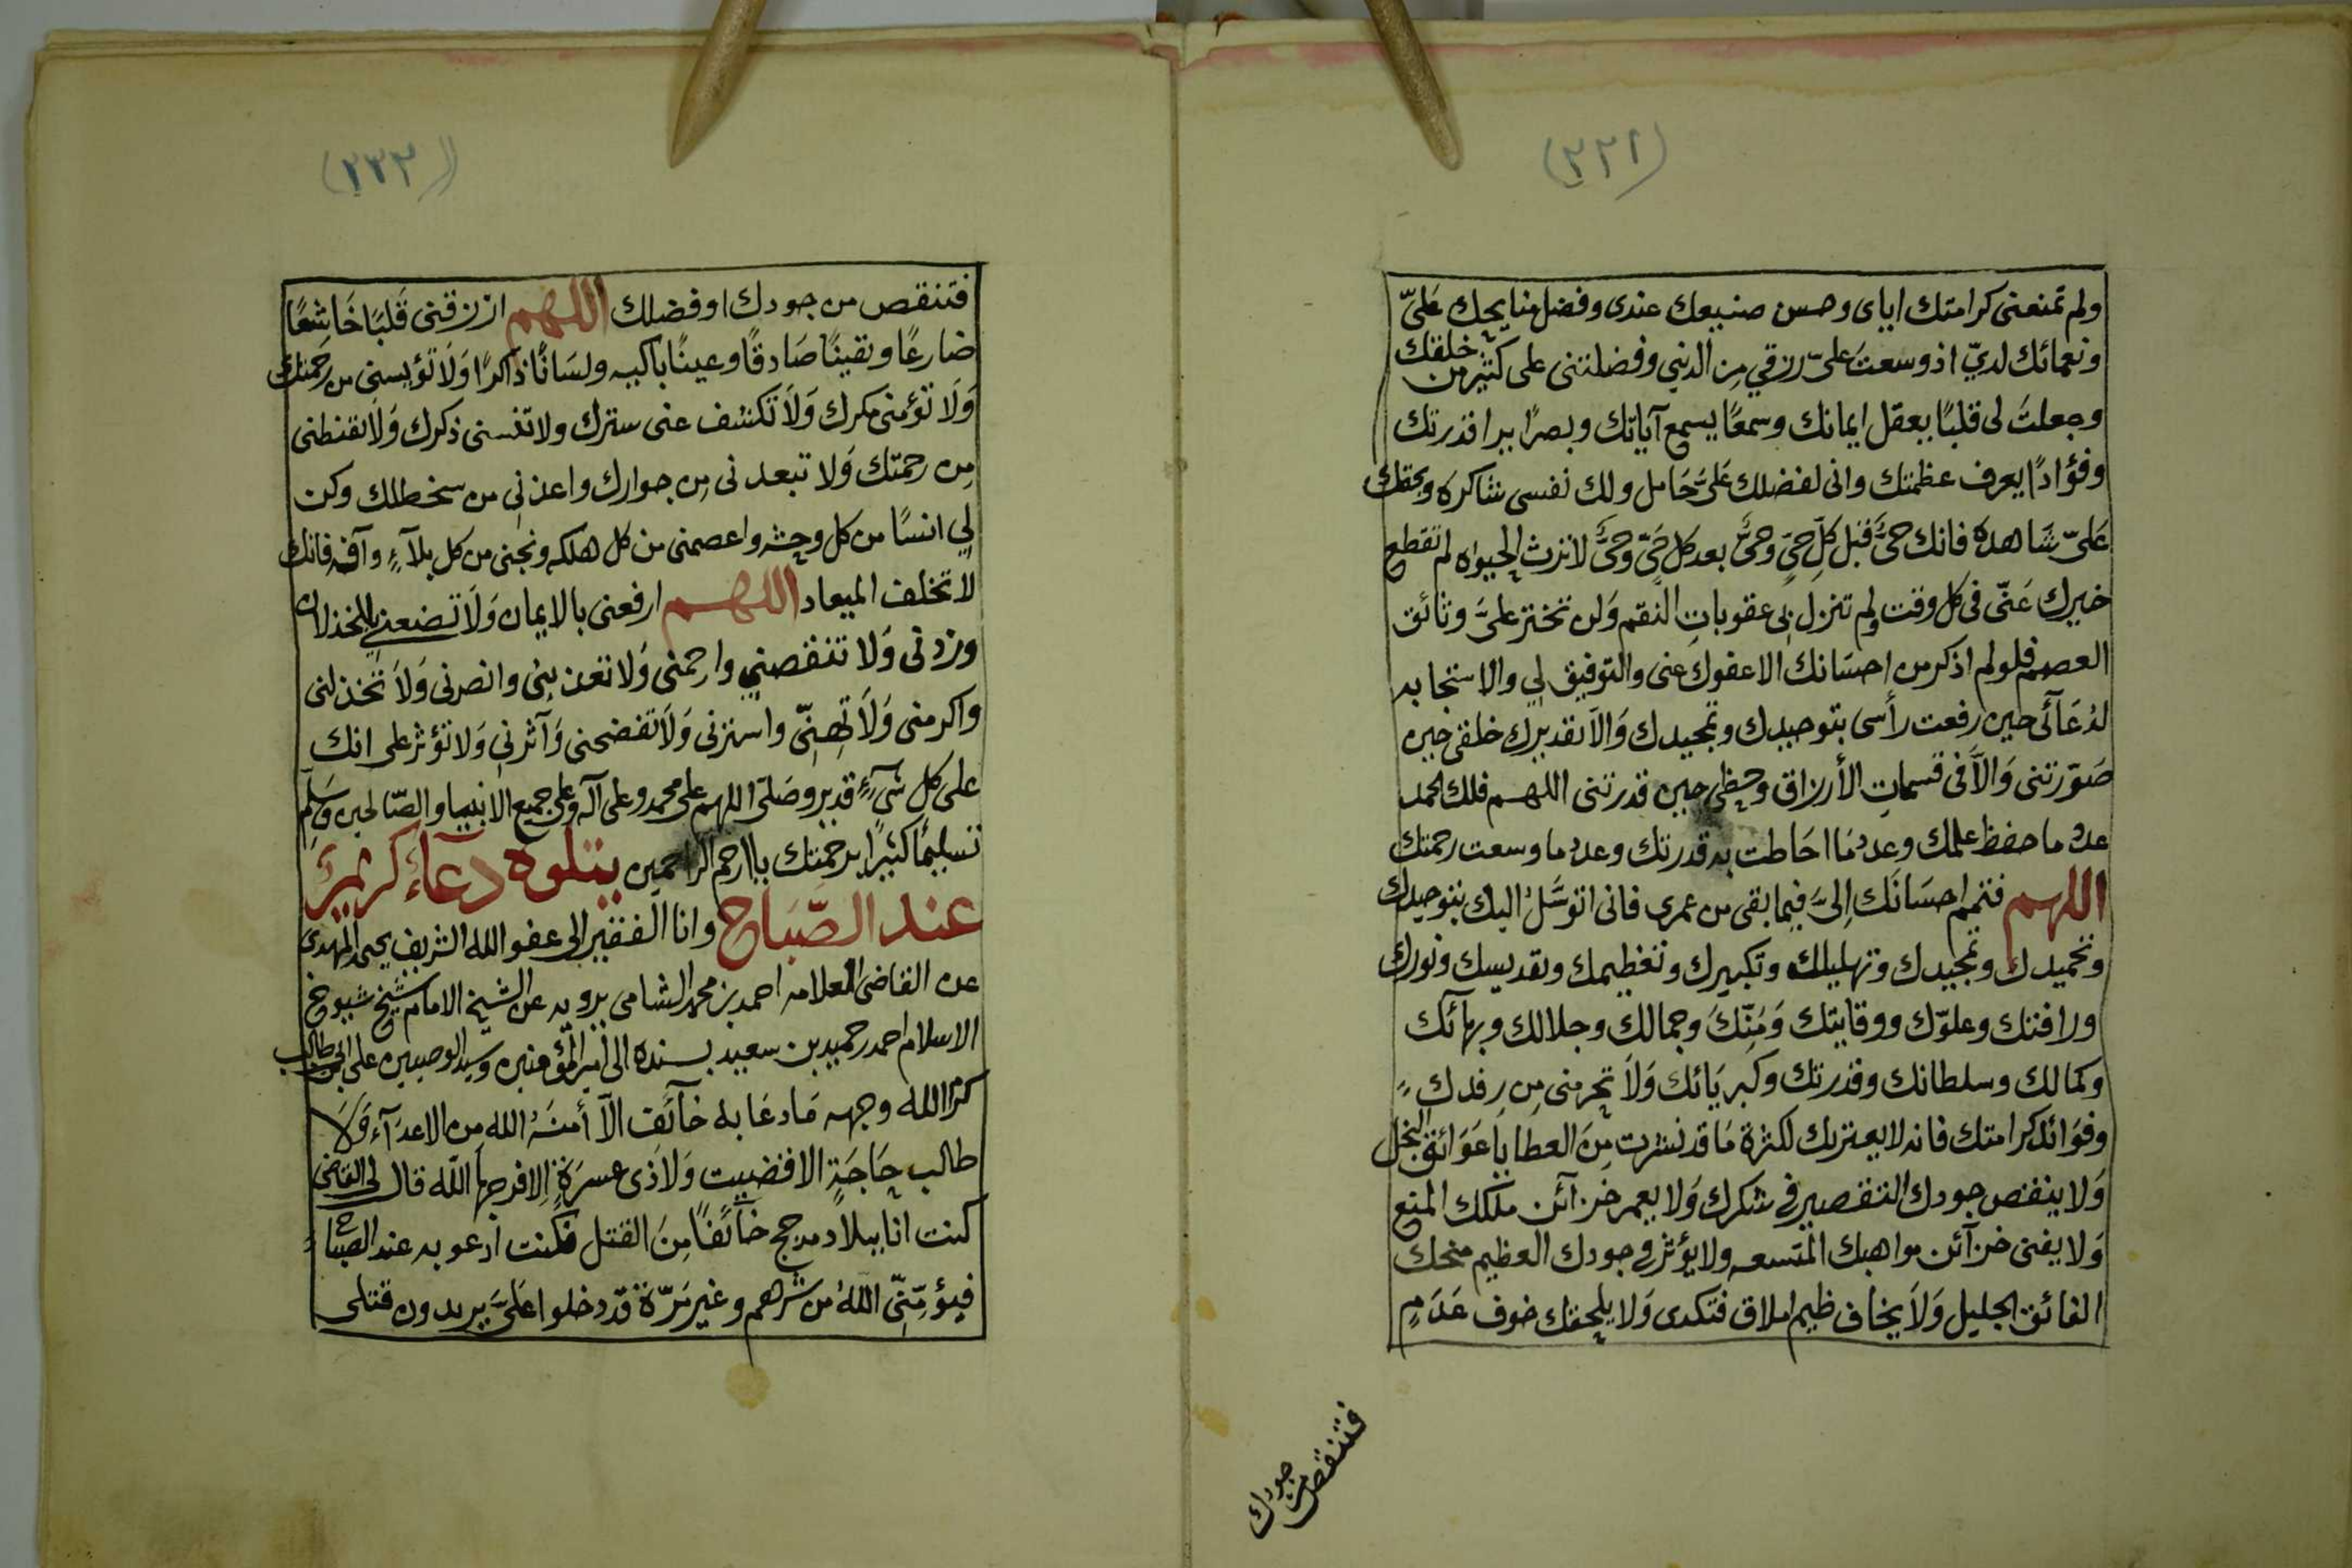 (٢٢١)
ولم تمنعنى كرامتك اياى وحسن صنيعك عندى وفضل منايحك عَليّ
ونعمائك لديّ اذ وسعتَ علىّ رزقي مِن الدنيى وفضلتنى على كثير من خلقك
وجعلتَ لى قلبًا يعقل ايمانك وسمعًا يسمع آياتك وبصرًا يرا قدرتك
وفؤادًا يعرف عظمتك وانى لفضلك عَليَّ حَامل ولك نفسى شاكره وبحقك
عَليّ شَاهده فانك حىٌّ قبل كلّ حيٍّ وحىٌّ بعد كل حيٍّ وحىٌّ لا ترث الحيواه لم تقطع
خيرك عَنّى فى كل وقت ولم تنزل بى عقوبات النقم وَلم تختر علىَّ وثائق
العصم فلو لم اذكر من احسَانك الا عفوك عنى والتوفيق لي والاستجابه
لدُعَآئى حين رفعت رأسى بتوحيدك وتمجيدك وَالا تقديرك خلقى حين
صَوّرتنى وَالاَّ فى قسمات الأرزاق وحظى حين قدرتنى اللهم فلك الحمد
عدد ما حفظ علمك وعدد مَا احَاطت به قدرتك وعدد ما وسعت رحمتك
اللهم فتمم احسَانَك اِلىَّ فيما بقى من عمرى فانى اتوسَّلُ اليك بتوحيدك
وتحميدك وتمجيدك وتهليلك وتكبيرك وتعظيمك وتقديسك ونورك
ورافتك وعلوّك ووقايتك وَمَنِّكَ وجمالك وجلالك وبهآئك
وكمالك وسلطانك وقدرتك وكبريَائك وَلاَ تحرمنى مِن رِفدك
وفوَائد كرامتك فانه لا يعتريك لكثرة مَا قد نشرت مِنَ العطايا عَوَائق البخل
وَلا ينقص جودك التقصير في شكرك وَلا يعمر خزآئن ملكك المنع
وَلا يفنى خزآئن مواهبك المتسعه ولا يؤثر في جودك العظيم منحك
الفائق الجليل وَلاَ يخاف ظيم املاق فتكدى وَلا يلحقك خوف عَدَمٍ
فتنقص من جودك
(٢٢٢)
فتنقص من جودك او فضلك اللهم ارزقنى قَلبًا خَاشعًا
ضارعًا ويقينًا صَادقًا وعينًا باكيه ولسَانًا ذاكرًا وَلاَ تؤيسنى من رحمتك
وَلا تؤمنى مكرك وَلاَ تكشف عنى سترك ولا تنسنى ذكرك وَلاَ تقنطنى
مِن رحمتك وَلا تبعدنى مِن جوارك واعذنى من سخطك وكن
لِي انسًا من كل وحشه واعصمنى من كل هلكه ونجنى من كل بلآءٍ وآفه فانك
لا تخلف الميعاد اللهم ارفعنى بالايمان وَلاَ تضعنى بالخذلان
وزدنى وَلا تنقصني وارحمنى وَلا تعذبنى وانصرنى وَلاَ تخذلنى
واكرمنى وَلاَ تهنّى واسترنى وَلاَ تفضحنى وَآثرني وَلا تؤثر على انك
على كل شيءٍ قدير وصَلى اللهم على محمد وعلى آله وعلى جميع الانبيا والصّالحين وَسَلم
تسليمًا كثيرًا برحمتك يا ارحم الراحمين يتلوه دعآء كريم
عند الصَّبَاح وانا الفقير الى عفو الله الشريف يحيى المهدى
عن القاضى العلامه احمد بن محمد الشامى يرويه عن الشيخ الامام شيخ شيوخ
الاسلام احمد حميد بن سعيد بسنده الى امير المؤمنين وسيد الوصيين على ابن ابى طالب
كرم الله وجهه مَا دعَا به خآئف الآ أمنهُ الله مِن الاعدَآء وَلاَ
طالب حِاجَةٍ الا قضيت وَلاَ ذى عسرَةٍ اِلا فرجهَا اللّه قال لى القاضى
كنت انا ببلاد مدحج خآئفًا مِنَ القتل فكنت ادعو به عند الصبَاح
فيؤمِّنِّى اللهُ من شرهم وغير مَرّة قد دخلوا عَليَّ يريدون قتلى